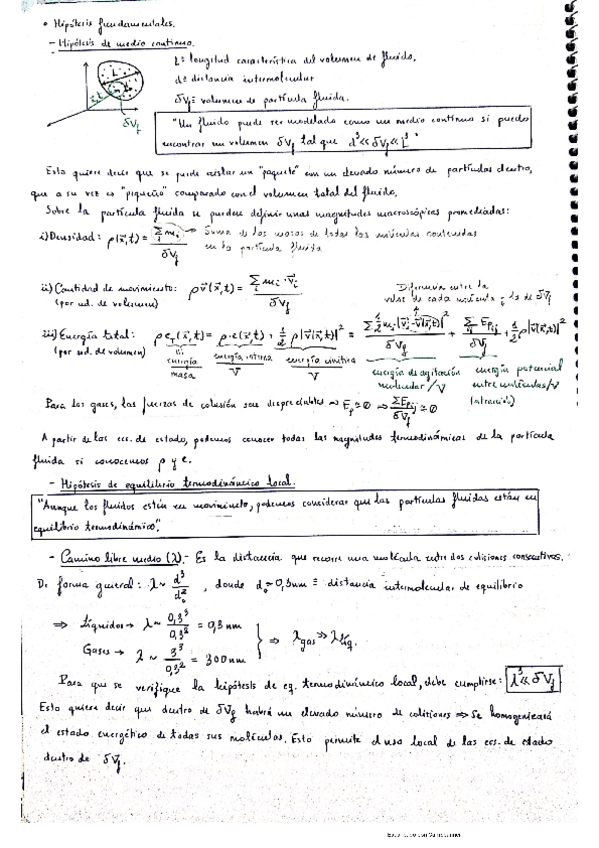 • Hipótesis fundamentales.
- Hipótesis de medio continuo.
L ≡ longitud característica del volumen de fluido.
d ≡ distancia intermolecular
δV_f ≡ volumen de partícula fluida.
"Un fluido puede ser modelado como un medio continuo si puedo
encontrar un volumen δV_f tal que d³ << δV_f << L³"
δV_f
Esto quiere decir que se puede aislar un "paquete" con un elevado número de partículas dentro,
que a su vez es "pequeño" comparado con el volumen total del fluido.
Sobre la partícula fluida se pueden definir unas magnitudes macroscópicas promediadas:
i) Densidad: ρ(x⃗,t) = Σ m_i / δV_f → Suma de las masas de todas las moléculas contenidas
en la partícula fluida
ii) Cantidad de movimiento: ρv⃗(x⃗,t) = Σ m_i · v⃗_i / δV_f
(por ud. de volumen)
Diferencia entre la
veloc de cada molécula y la de δV_f
iii) Energía total: ρe_T(x⃗,t) = ρ·e(x⃗,t) + ½ ρ|v⃗(x⃗,t)|² = Σ ½ m_i·|v⃗_i - v⃗(x⃗,t)|² / δV_f + Σ E_pij / δV_f + ½ ρ|v⃗(x⃗,t)|²
(por ud. de volumen)
energía / masa
energía interna / V
energía cinética / V
energía de agitación molecular / V
energía potencial entre moléculas / V (atracción)
Para los gases, las fuerzas de cohesión son despreciables ⇒ E_p ≅ 0 ⇒ Σ E_pij / δV_f ≅ 0
A partir de las ecs. de estado, podemos conocer todas las magnitudes termodinámicas de la partícula
fluida si conocemos ρ y e.
- Hipótesis de equilibrio termodinámico local.
"Aunque los fluidos estén en movimiento, podemos considerar que las partículas fluidas están en
equilibrio termodinámico".
- Camino libre medio (λ).- Es la distancia que recorre una molécula entre dos colisiones consecutivas.
De forma general: λ ~ d³ / d_o² , donde d_o ~ 0,3nm ≡ distancia intermolecular de equilibrio
⇒ Líquidos → λ ~ 0,3³ / 0,3² = 0,3 nm
Gases → λ ~ 3³ / 0,3² = 300 nm
⇒ λ_gas >> λ_líq.
Para que se verifique la hipótesis de eq. termodinámico local, debe cumplirse: λ³ << δV_f
Esto quiere decir que dentro de δV_f habrá un elevado número de colisiones ⇒ Se homogeneizará
el estado energético de todas sus moléculas. Esto permite el uso local de las ecs. de estado
dentro de δV_f.